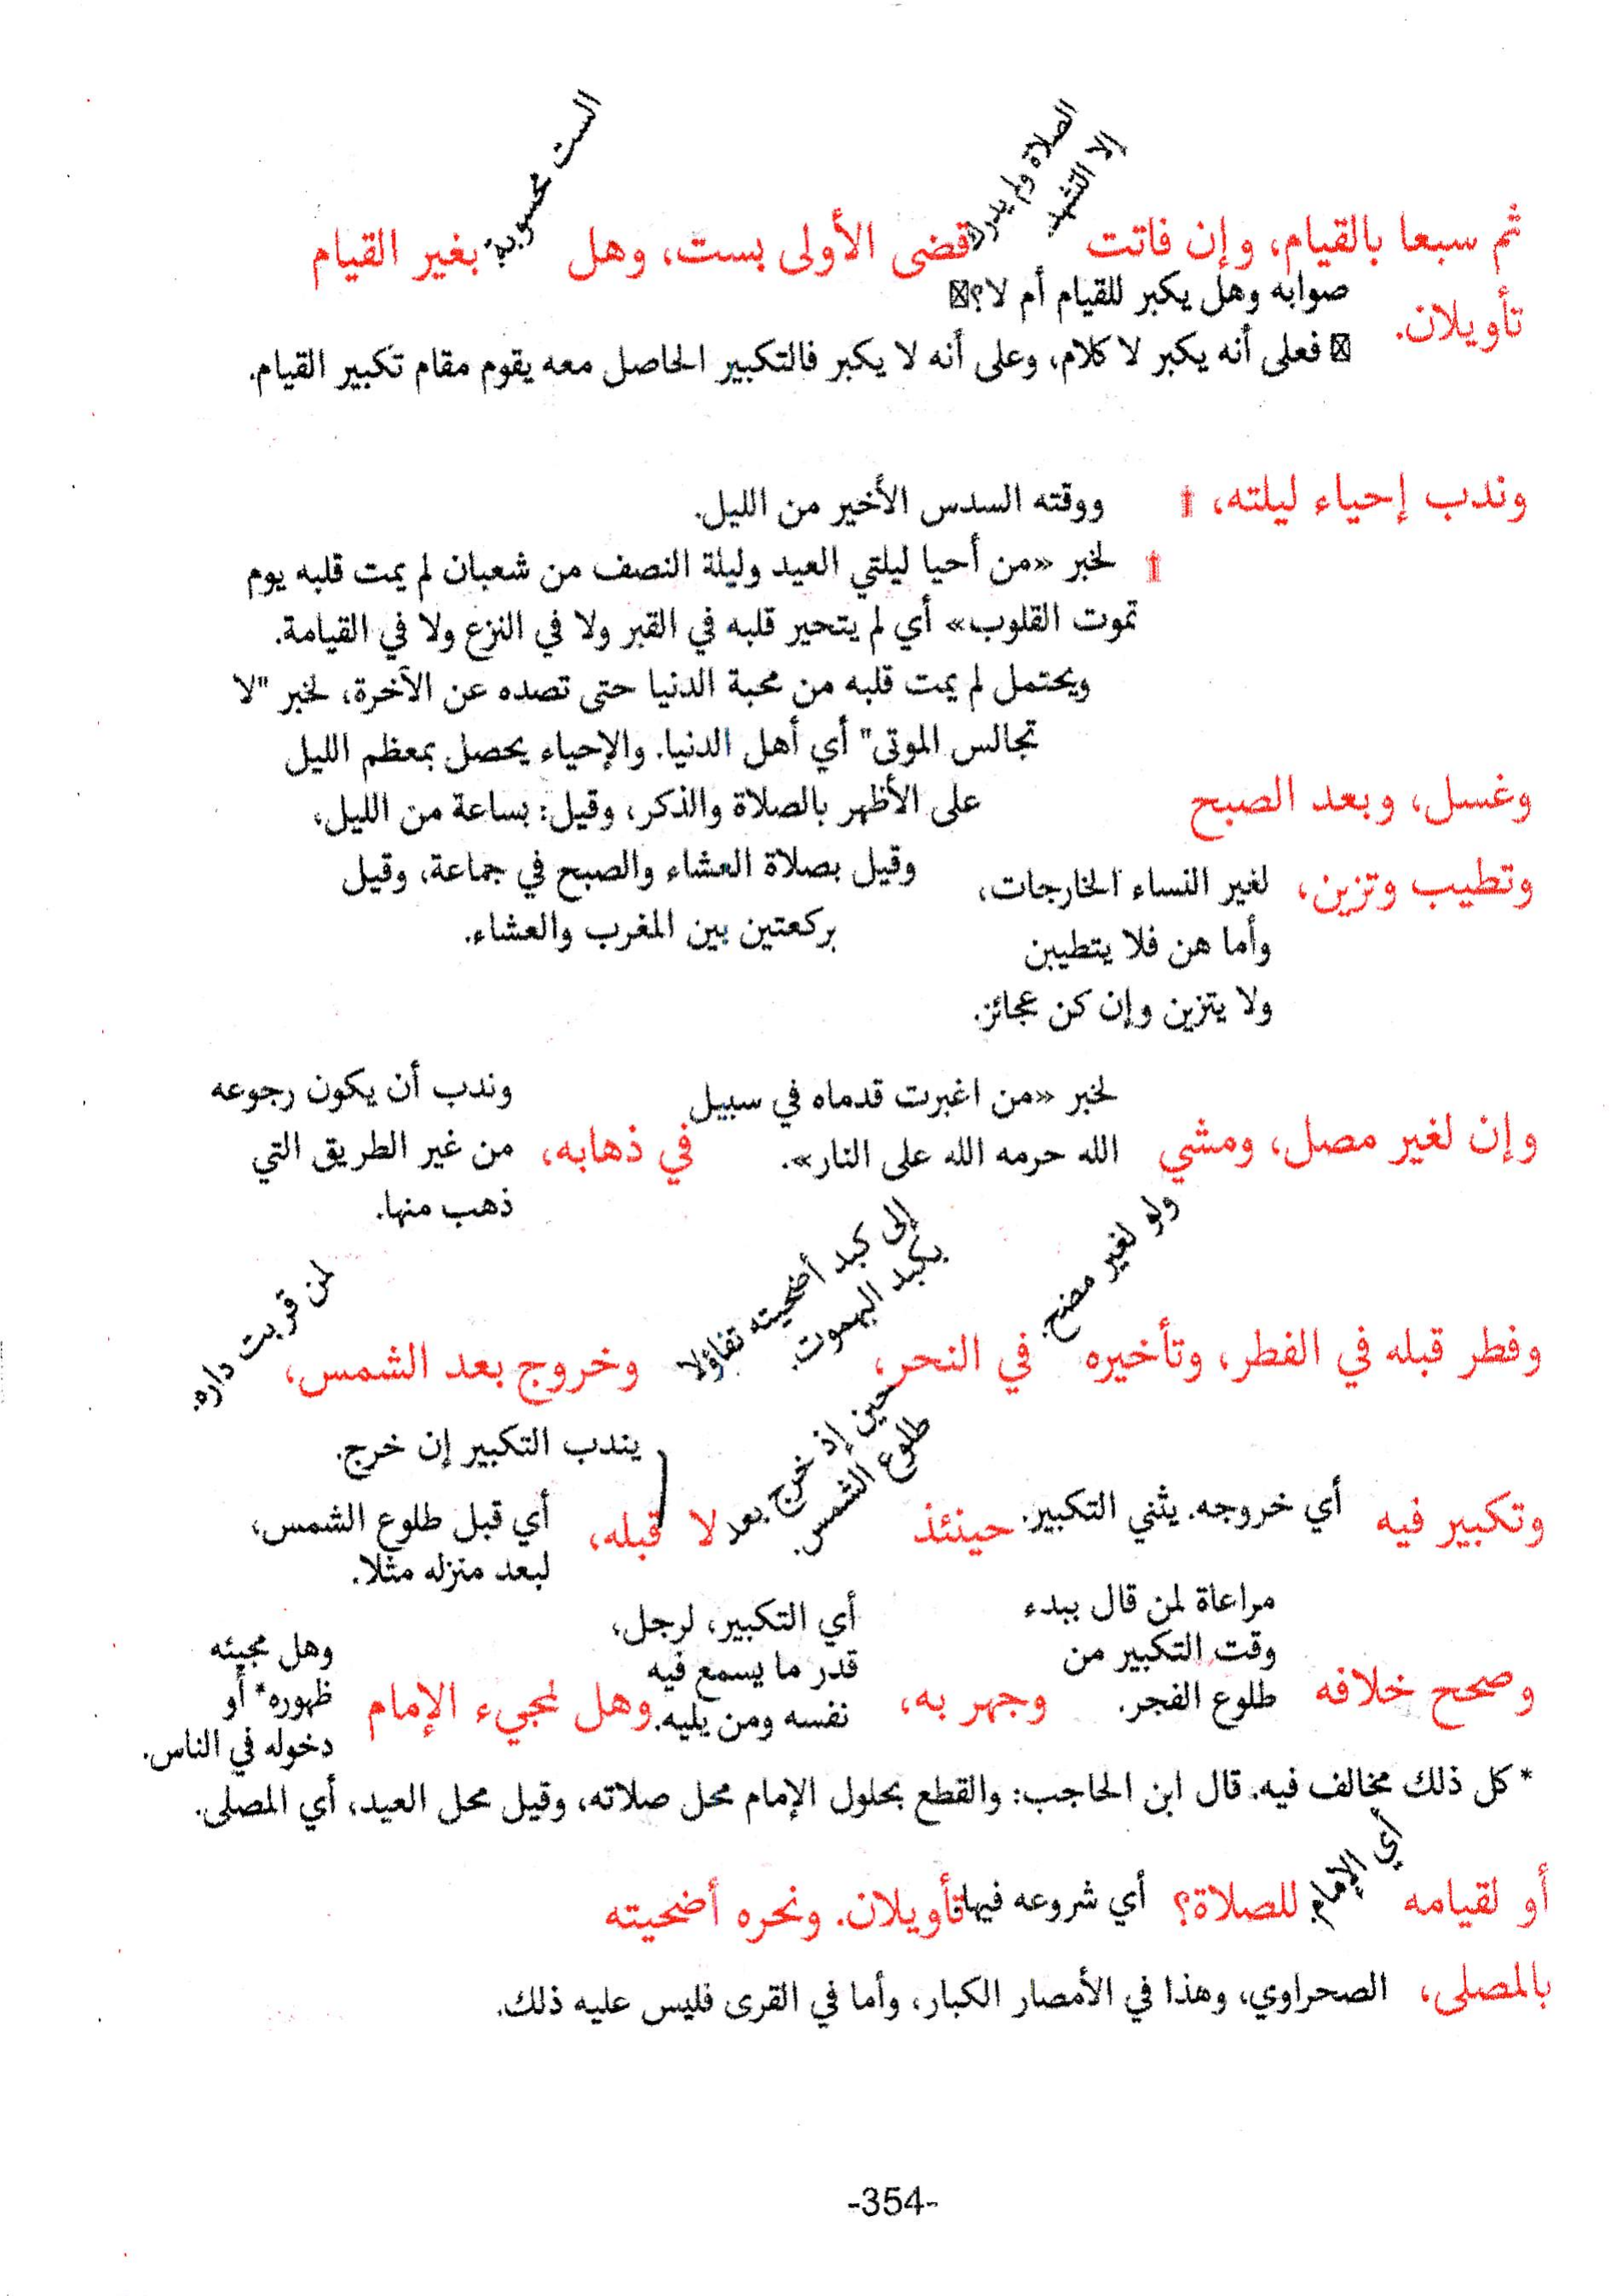 ثم سبعا بالقيام، وإن فاتت الصلاة ولم يدرك إلا التشهد قضى الأولى بست، وهل الست محسوبة بغير القيام
تأويلان. صوابه وهل يكبر للقيام أم لا؟
فعلى أنه يكبر لا كلام، وعلى أنه لا يكبر فالتكبير الحاصل معه يقوم مقام تكبير القيام.
وندب إحياء ليلته، ووقته السدس الأخير من الليل.
لخبر «من أحيا ليلتي العيد وليلة النصف من شعبان لم يمت قلبه يوم
تموت القلوب» أي لم يتحير قلبه في القبر ولا في النزع ولا في القيامة.
ويحتمل لم يمت قلبه من محبة الدنيا حتى تصده عن الآخرة، لخبر "لا
تجالس الموتى" أي أهل الدنيا. والإحياء يحصل بمعظم الليل
على الأظهر بالصلاة والذكر، وقيل: بساعة من الليل،
وقيل بصلاة العشاء والصبح في جماعة، وقيل
بركعتين بين المغرب والعشاء.
وغسل، وبعد الصبح
وتطيب وتزين، لغير النساء الخارجات،
وأما هن فلا يتطيبن
ولا يتزين وإن كن عجائز.
وإن لغير مصل، ومشي
لخبر «من اغبرت قدماه في سبيل
الله حرمه الله على النار».
في ذهابه،
وندب أن يكون رجوعه
من غير الطريق التي
ذهب منها.
وفطر قبله في الفطر، وتأخيره
ولو لغير مضح.
في النحر،
إلى كبد أضحيته تفاؤلا
بكبد اليهموت.
وخروج بعد الشمس،
لمن قربت داره.
وتكبير فيه أي خروجه. يثني التكبير. حينئذ
حين إذ خرج بعد
طلوع الشمس.
لا قبله،
يندب التكبير إن خرج.
أي قبل طلوع الشمس،
لبعد منزله مثلا.
وصحح خلافه
مراعاة لمن قال ببدء
وقت التكبير من
طلوع الفجر.
وجهر به،
أي التكبير، لرجل،
قدر ما يسمع فيه
نفسه ومن يليه.
وهل لمجيء الإمام
وهل مجيئه
ظهوره* أو
دخوله في الناس.
* كل ذلك مخالف فيه. قال ابن الحاجب: والقطع بحلول الإمام محل صلاته، وقيل محل العيد، أي المصلى.
أو لقيامه أي الإمام. للصلاة؟ أي شروعه فيها. تأويلان. ونحره أضحيته
بالمصلى، الصحراوي، وهذا في الأمصار الكبار، وأما في القرى فليس عليه ذلك.
-354-